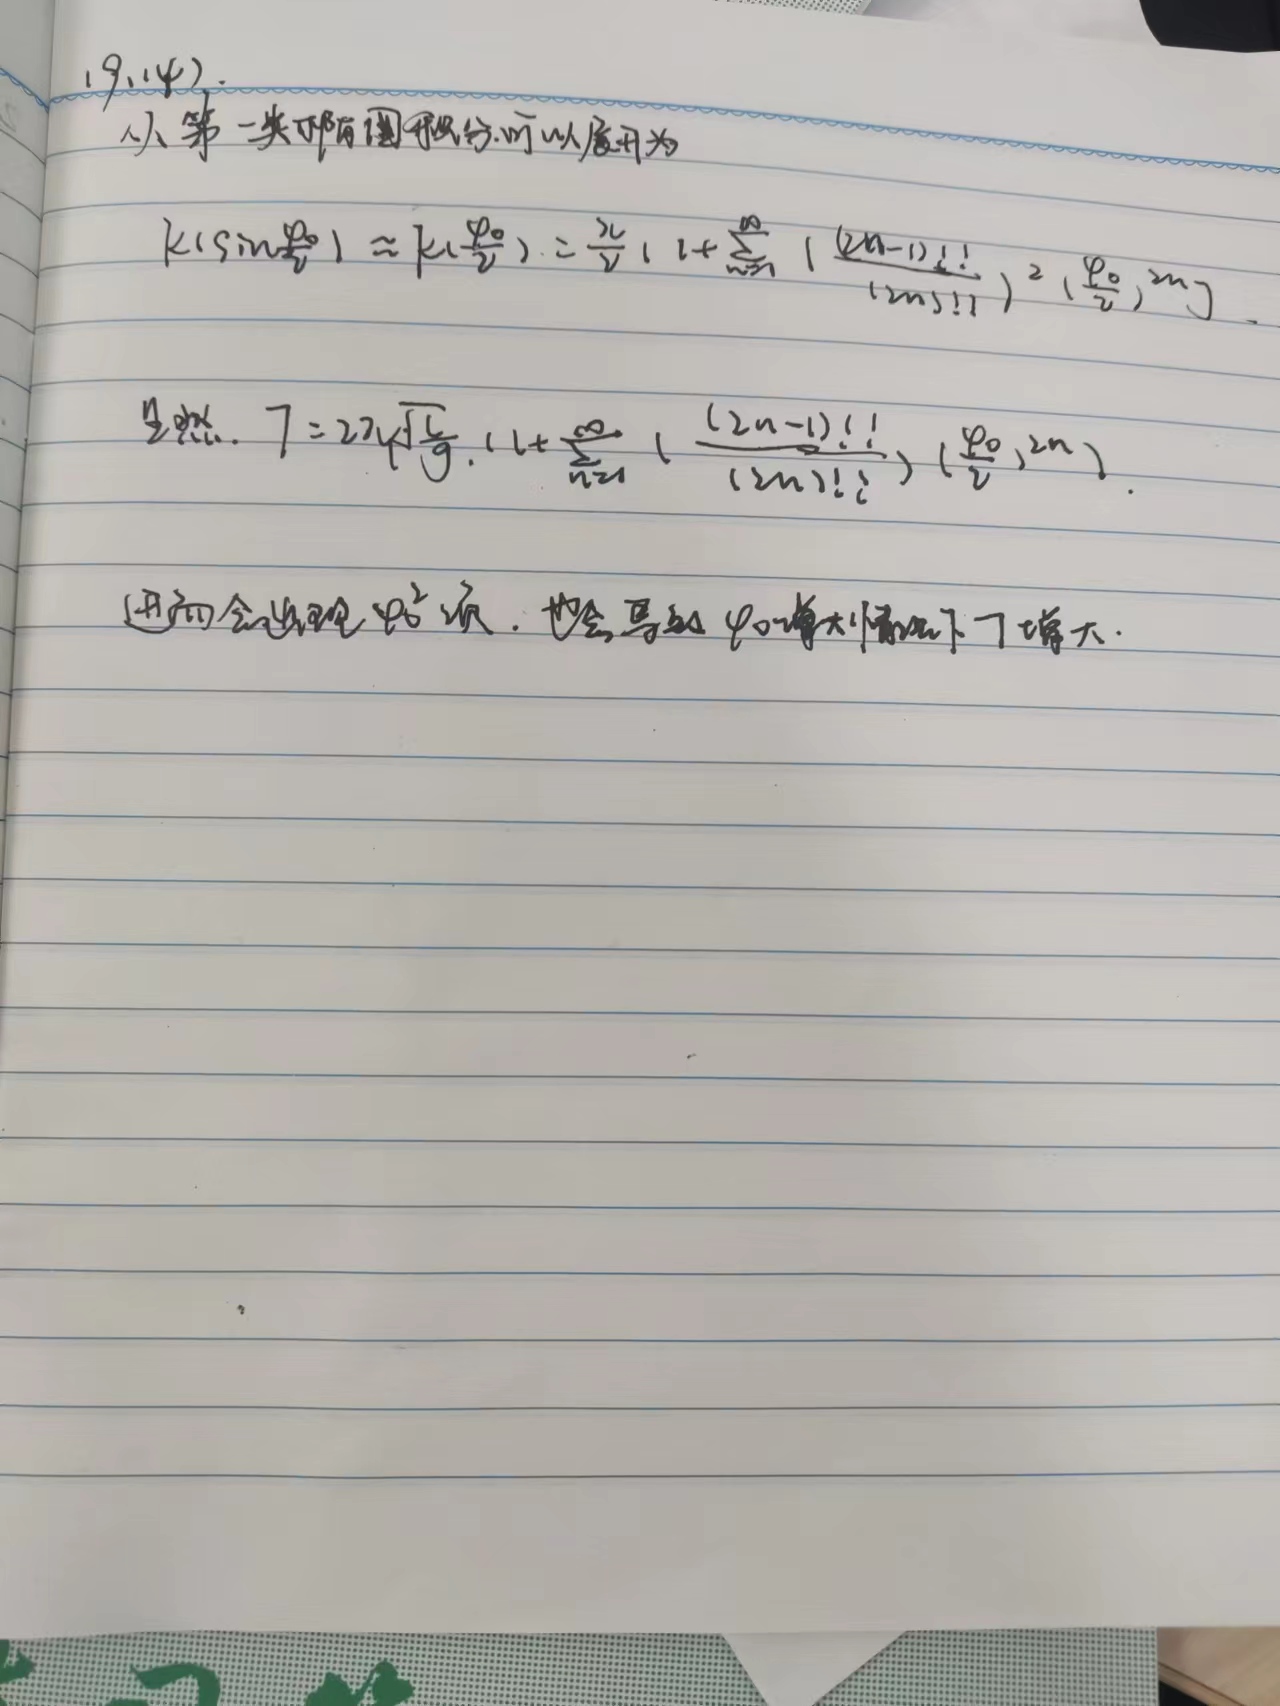 19.(4).
从第一类椭圆积分.可以展开为
K(sin φ₀/2) ≈ K(φ₀/2) = π/2 (1+ ∑_{n=1}^{∞} ((2n-1)!!/(2n)!!)² (φ₀/2)^{2n}].
显然. T=2π√(L/g).(1+ ∑_{n=1}^{∞} ((2n-1)!!/(2n)!!) (φ₀/2)^{2n}).
进而会出现 φ₀² 项. 也会导致 φ₀增大情况下 T 增大.